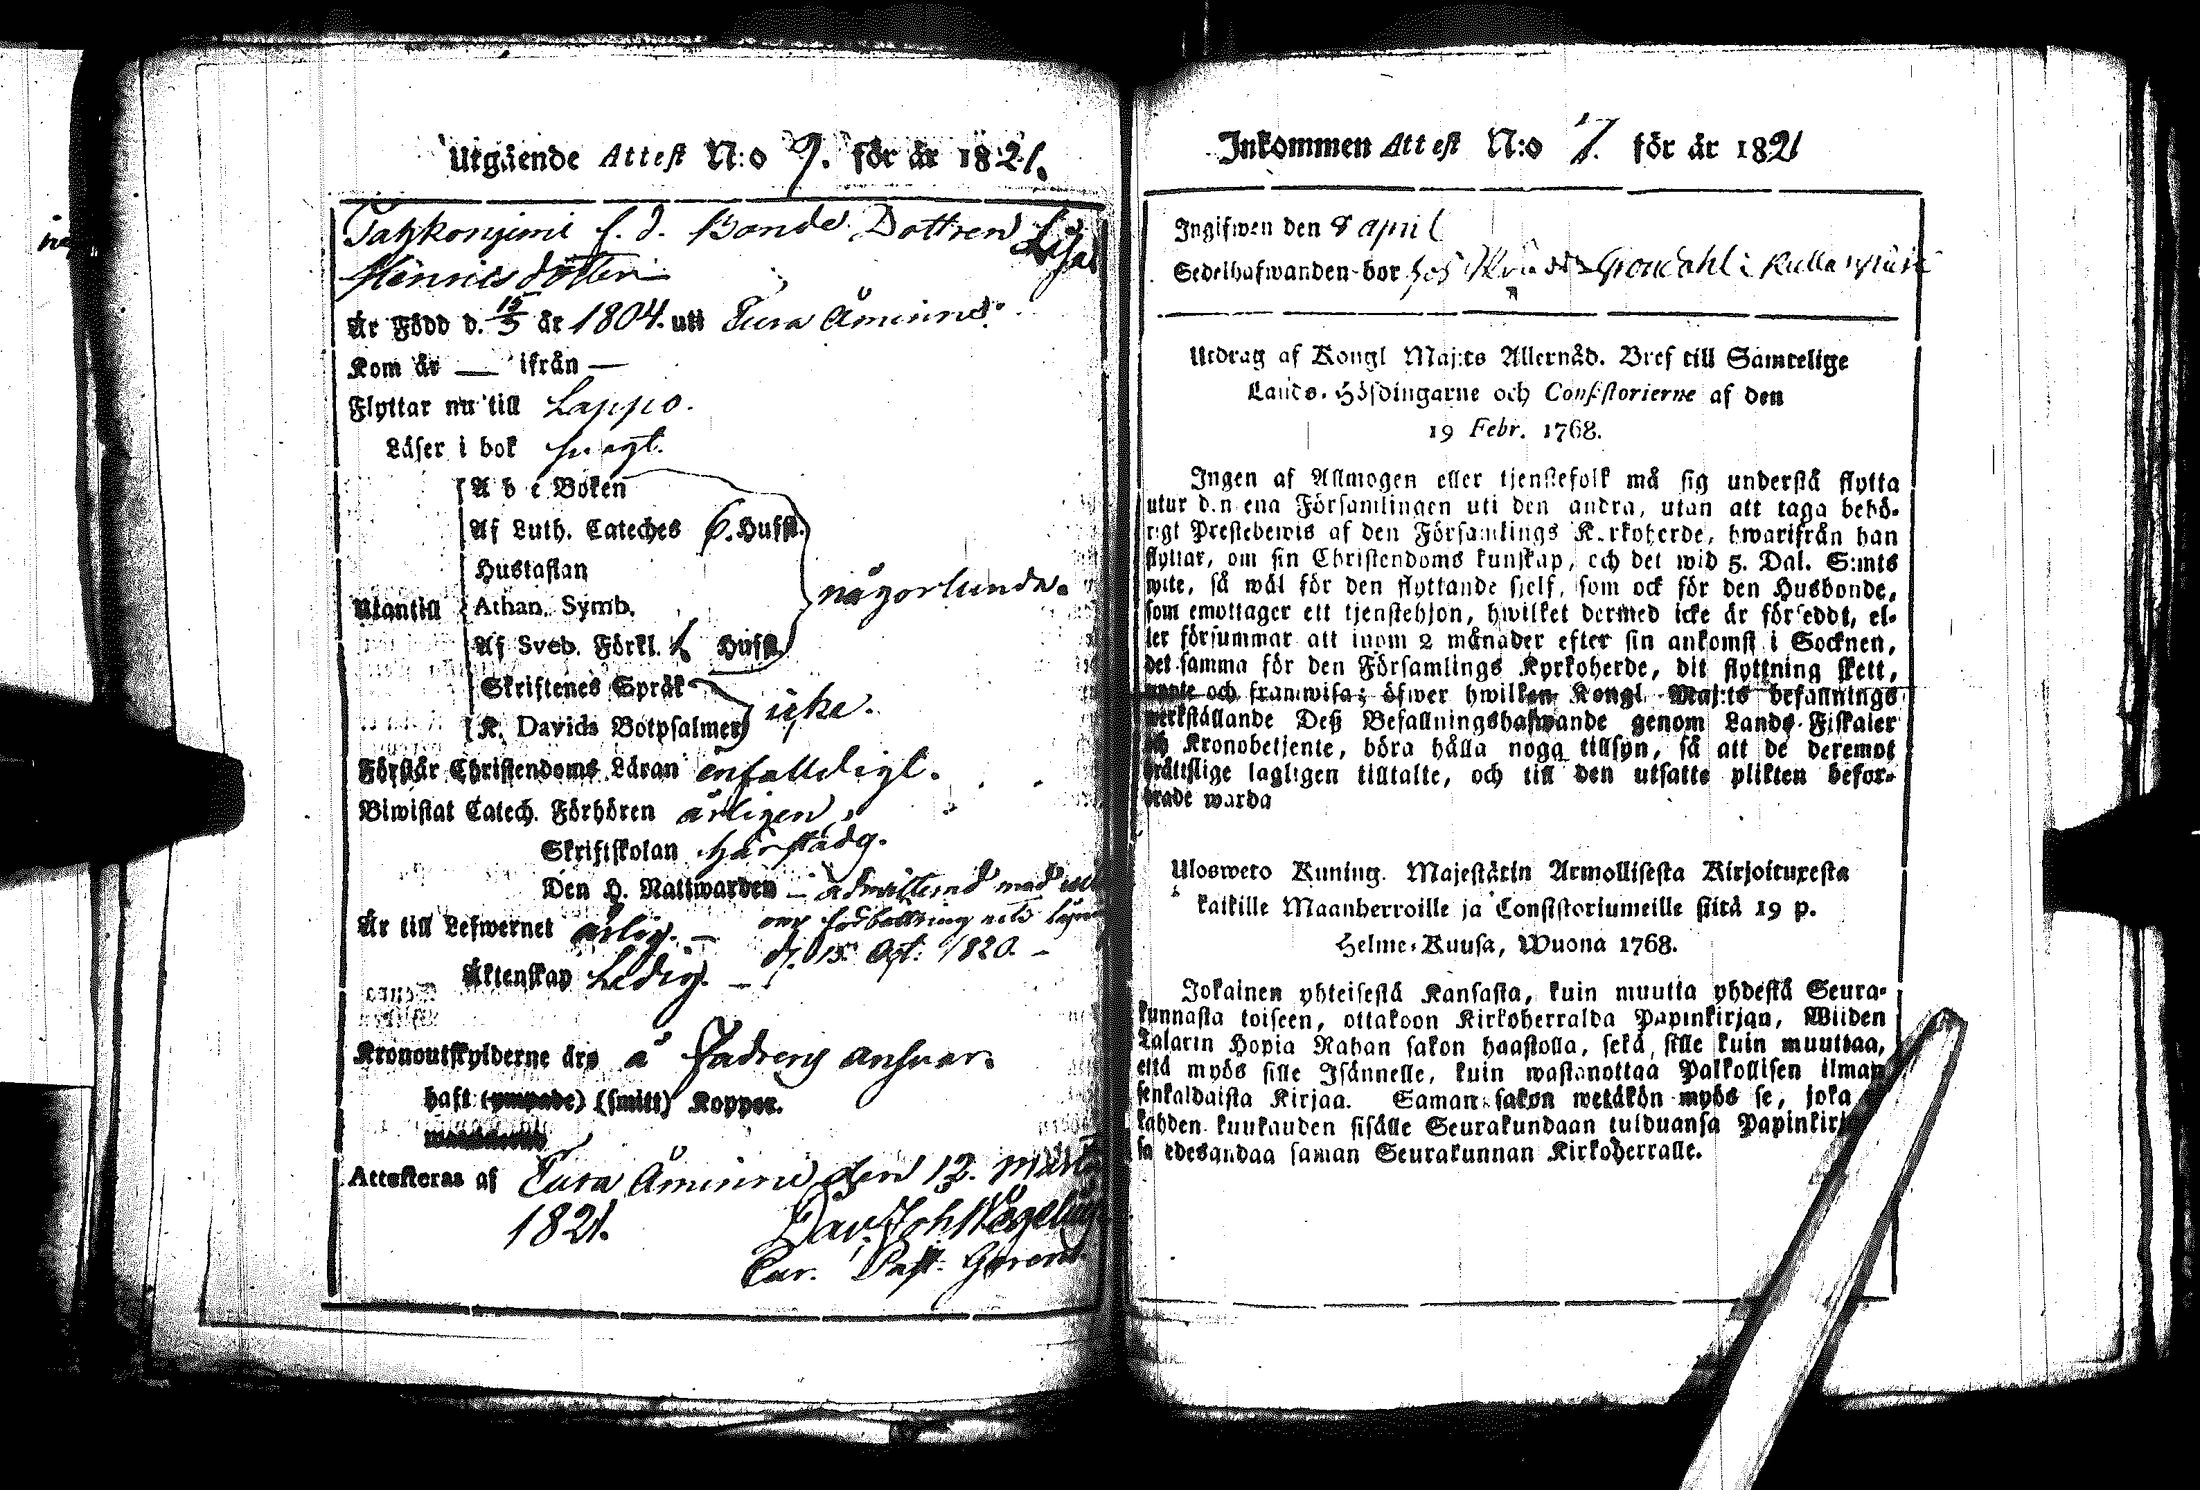 Utgående Attest N:o 9. för år 1821.
f. d. Bonde Dottren Lisa
Henricsdotter
Är Född d. 15/3 år 1804. uti Eura Åminne.
Kom år — ifrån —
Flyttar nu till Lappo.
Läser i bok
A b c Boken
Af Luth. Cateches 6. Hufst.
Hustaflan
Utantill Athan. Symb. någorlunda.
Af Sveb. Förkl. 6 Hufst.
Skriftenes Språk
K. Davids Botpsalmer icke.
Förstår Christendoms Läran enfaldigt.
Biwistat Catech. Förhören årligen,
Skriftskolan härstädg.
Den H. Nattwarden – admitterad med
Är till Lefwernet ärlig. — om förbättring
Äktenskap Ledig. — d. 15 Oct: 1820. –
Kronoutskylderne äro å Fadrens answar.
haft (ympade) (smitt) Koppor.
Attesteras af Eura Åminne den 12. Mart.
1821. Dav. Joh. Wegelius
Cur. Past. Gerens.
Inkommen Attest N:o 7. för år 1821
Ingifwen den 8 april
Sedelhafwanden bor hos Grondahl i
Utdrag af Kongl Maj:ts Allernåd. Bref till Samtelige
Lands-Höfdingarne och Consistorierne af den
19 Febr. 1768.
Ingen af Allmogen eller tjenstefolk må sig understå flytta
utur den ena Församlingen uti den andra, utan att taga behö-
rigt Prestebewis af den Församlings Kyrkoherde, hwarifrån han
flyttar, om sin Christendoms kunskap, och det wid 5. Dal. S:mts
wite, så wäl för den flyttande sjelf, som ock för den Husbonde,
som emottager ett tjenstehjon, hwilket dermed icke är försedt, el-
ler försummar att inom 2 månader efter sin ankomst i Socknen,
det samma för den Församlings Kyrkoherde, dit flyttning skett,
uppte och framwisa; öfwer hwilken Kongl Maj:ts befallnings
werkställande Deß Befallningshafwande genom Lands-Fiskaler
och Kronobetjente, böra hålla noga tillsyn, så att de deremot
brättslige lagligen tilltalte, och till den utsatte plikten befor-
drade warda
Ulosweto Kuning. Majestätin Armollisesta Kirjoituxesta
kaikille Maanherroille ja Consistoriumeille siitä 19 p.
Helme-Kuusa, Wuona 1768.
Jokainen yhteisestä Kansasta, kuin muutta yhdestä Seura-
kunnasta toiseen, ottakoon Kirkoherralda Papinkirjan, Wiiden
Talarin Hopia Rahan sakon haastolla, sekä sille kuin muuttaa,
että myös sille Isännelle, kuin wastanottaa Palkollisen ilman
senkaldaista Kirjaa. Saman sakon wetäkön myös se, joka
kahden kuukauden sisälle Seurakundaan tulduansa Papinkirja
sa edesandaa saman Seurakunnan Kirkoherralle.